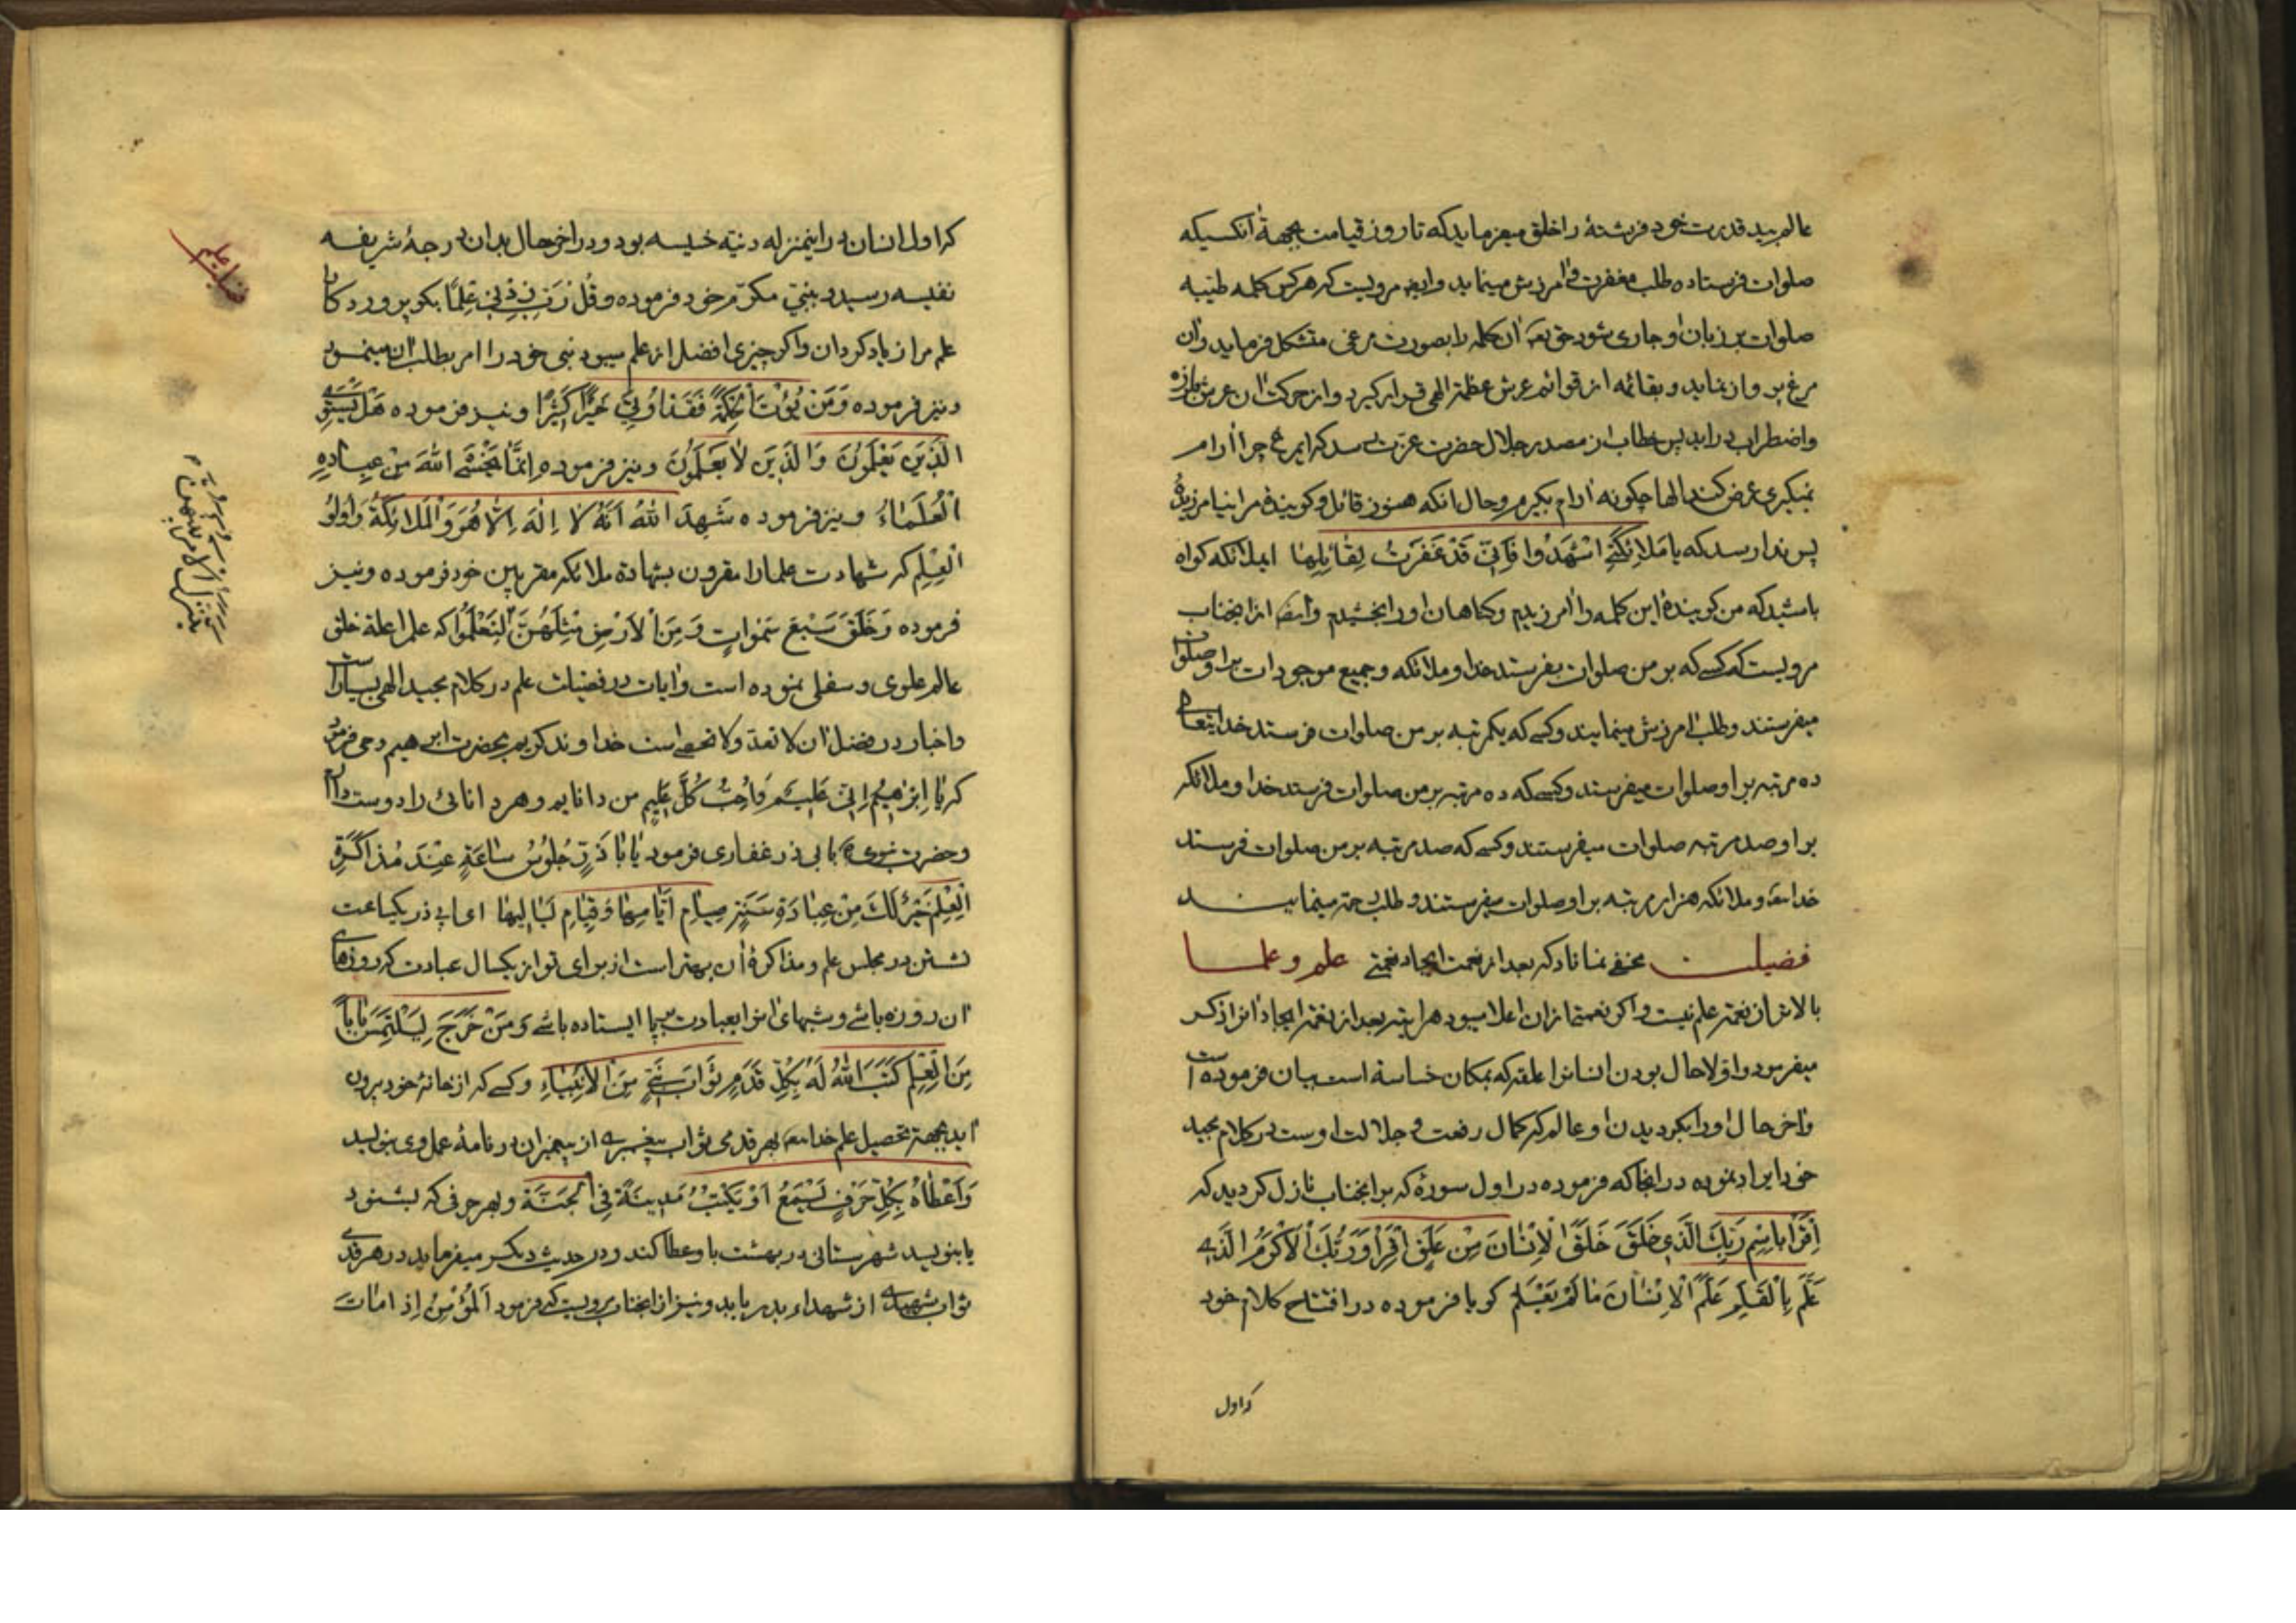 عالم بید قدرت خود فرشتهٔ را خلق میفرماید که تا روز قیامت بجهة آنکسیکه
صلوات فرستاده طلب مغفرت و آمرزش مینماید و ایضا مرویست که هر کس کلمه طیبه
صلوات بر زبان او جاری شود حق تعه آن کلمه را بصورت مرغی متشکل فرماید و آن
مرغ پرواز نماید و بقائمه از قوائم عرش عظمة الهی قرار کیرد و از حرکت آن عرش بلرزه
و اضطراب دراید پس خطاب از مصدر جلال حضرت عزت رسد که ایمرغ چرا آرام
نمیکیری عرض کند الها چکونه آرام بکیرم و حال آنکه هنوز قائل و کوینده مرا نیامرزیدهٔ
پس ندا رسد که یا مَلائِکَتِی اشْهَدُوا فَاِنّی قَدْ غَفَرْتُ لِقائِلِها ایملائکه کواه
باشید که من کویندهٔ این کلمه را آمرزیدم و کناهان او را بخشیدم و ایضا از انجناب
مرویست که کسی که بر من صلوات بفرستد خدا و ملائکه و جمیع موجودات بر او صلوات
میفرستند و طلب آمرزش مینمایند و کسی که یکمرتبه بر من صلوات فرستد خدایتعالی
ده مرتبه بر او صلوات میفرستد و کسی که ده مرتبه بر من صلوات فرستد خدا و ملائکه
بر او صد مرتبه صلوات میفرستند و کسی که صد مرتبه بر من صلوات فرستد
خدا تعه و ملائکه هزار مرتبه بر او صلوات میفرستند و طلب رحمة مینمایند
فضیلت مخفی نماناد که بعد از نعمت ایجاد نعمتی علم و علما
بالاتر از نعمة علم نیست و اکر نعمتی ازان اعلا میبود هر اینه بعد از نعمة ایجاد انرا ذکر
میفرمود و اولا حال بودن انسانرا علقه که بمکان خساسة است بیان فرموده است
و آخر حال او را بکردیدن او عالم که کمال رفعت و جلالت اوست در کلام مجید
خود ایراد نموده در انجا که فرموده در اول سورهٔ که بر انجناب نازل کردید که
اِقْرَأْ بِاسْمِ رَبِّکَ الَّذِی خَلَقَ خَلَقَ الْاِنْسَانَ مِنْ عَلَقٍ اقْرَأْ وَ رَبُّکَ الْاَکْرَمُ الَّذِی
عَلَّمَ بِالْقَلَمِ عَلَّمَ الْاِنْسَانَ مَا لَمْ یَعْلَمْ کویا فرموده در افتتاح کلام خود
که اول
که اول انسان در اینمنزله دنیه خسیسه بود و در اخر حال بدان درجهٔ شریفه
نفیسه رسید و بنبی مکرم خود فرموده وَ قُلْ رَبِّ زِدْنِی عِلْمًا بکو پروردکارا
علم مرا زیاد کردان و اکر چیزی افضل از علم میبود نبی خود را امر بطلب آن مینمود
و نیز فرموده وَ مَنْ یُؤْتَ الْحِکْمَةَ فَقَدْ اُوتِیَ خَیْرًا کَثِیْرًا و نیز فرموده هَلْ یَسْتَوِی
الَّذِیْنَ یَعْلَمُونَ وَ الَّذِیْنَ لَا یَعْلَمُونَ و نیز فرموده اِنَّمَا یَخْشَی اللهَ مِنْ عِبَادِهِ
الْعُلَمَاءُ و نیز فرموده شَهِدَ اللهُ اَنَّهُ لَا اِلٰهَ اِلَّا هُوَ وَ الْمَلَائِکَةُ وَ اُولُو
الْعِلْمِ که شهادت علما را مقرون بشهادة ملائکه مقربین خود فرموده و نیز
فرموده وَ خَلَقَ سَبْعَ سَمٰوَاتٍ وَ مِنَ الْاَرْضِ مِثْلَهُنَّ لِتَعْلَمُوا که علم را علة خلق
عالم علوی و سفلی نموده است و آیات در فضیلت علم در کلام مجید الهی بسیار است
و اخبار در فضل آن لا تعد و لا تحصی است خداوند کریم بحضرت ابرهیم وحی فرمود
که یا اِبْرَاهِیْمُ اِنِّی عَلِیْمٌ وَ اُحِبُّ کُلَّ عَلِیْمٍ من دانایم و هر دانائی را دوست دارم
و حضرت نبوی بابی ذر غفاری فرمود یَا اَبَا ذَرٍّ جُلُوسُ سَاعَةٍ عِنْدَ مُذَاکَرَةِ
الْعِلْمِ خَیْرٌ لَکَ مِنْ عِبَادَةِ سَنَةٍ صِیَامِ اَیَّامِهَا وَ قِیَامِ لَیَالِیهَا ای ابی ذر یکساعت
نشستن در مجلس علم و مذاکرهٔ آن بهتر است از برای تو از یکسال عبادت که روزهای
آن روزه باشی و شبهای انرا بعبادت بپا ایستاده باشی وَ مَنْ خَرَجَ لِیَلْتَمِسَ بَابًا
مِنَ الْعِلْمِ کَتَبَ اللهُ لَهُ بِکُلِّ قَدَمٍ ثَوَابَ نَبِیٍّ مِنَ الْاَنْبِیَاءِ و کسی که از خانهٔ خود بیرون
آید بجهة تحصیل علم خدا تعه بهر قدمی ثواب پیغمبری از پیغمبران در نامهٔ عمل وی بنویسد
وَ اَعْطَاهُ بِکُلِّ حَرْفٍ یَسْمَعُ اَوْ یَکْتُبُ مَدِینَةً فِی الْجَنَّةِ و بهر حرفی که بشنود
یا بنویسد شهرستانی در بهشت باو عطا کند و در حدیث دیکر میفرماید در هر قدمی
ثواب شهیدی از شهداء بدر یابد و نیز از انجناب مرویست که فرمود اَلْمُؤْمِنُ اِذَا مَاتَ